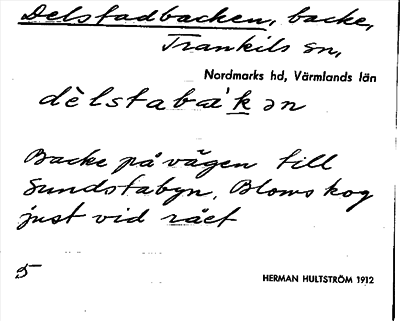 Delstadbacken, backe,
Trankils sn,
Nordmarks hd, Värmlands län
dèlstabàkən
Backe på vägen till
Sundstabyn, Blomskog
just vid rået
5
HERMAN HULTSTRÖM 1912